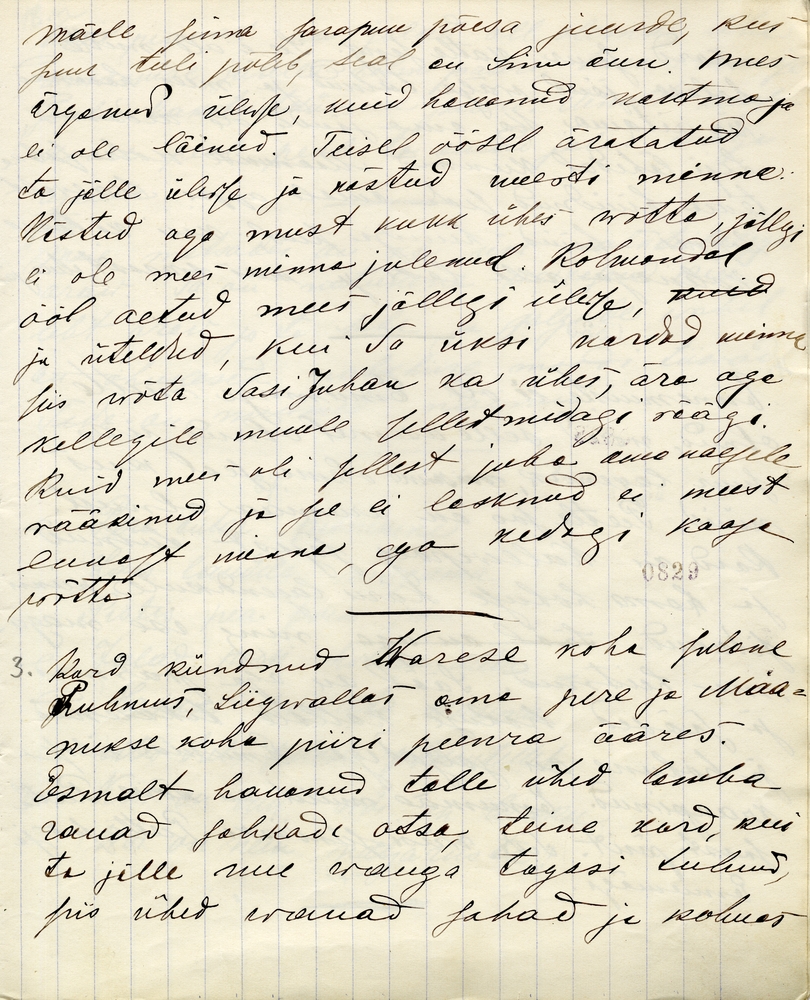 mäele sinna sarapuu põesa juurde, kus
suur tuli põleb, seal on Sinu õnn. Mees
ärganud ülesse, kuid hakanud kartma ja
ei ole läinud. Teisel öösel äratatud
ta jälle ülesse ja kästud uuesti minna.
Kästud aga must kukk ühes wõtta, jällegi
ei ole mees minna julenud. Kolmandal
ööl aetud mees jällegi ülesse, kuid
ja üteldud, kui Sa üksi kardad minna
siis wõta Sasi Juhan ka ühes, ära aga
kellegile muule sellest midagi räägi.
Kuid mees oli sellest juba oma naesele
rääkinud ja see ei lasknud ei meest
ennast minna, ega kedagi kaasa
wõtta.
0829
3. Kord kündnud Warese koha sulane
Ruhnus, Liigwallas oma pere ja Mäa-
nukse koha piiri peenra ääres.
Esmalt hakanud talle ühed lamba
rauad sahkade otsa, teine kord, kui
ta jälle uue waoga tagasi tulnud,
siis ühed wanad sahad ja kolmas